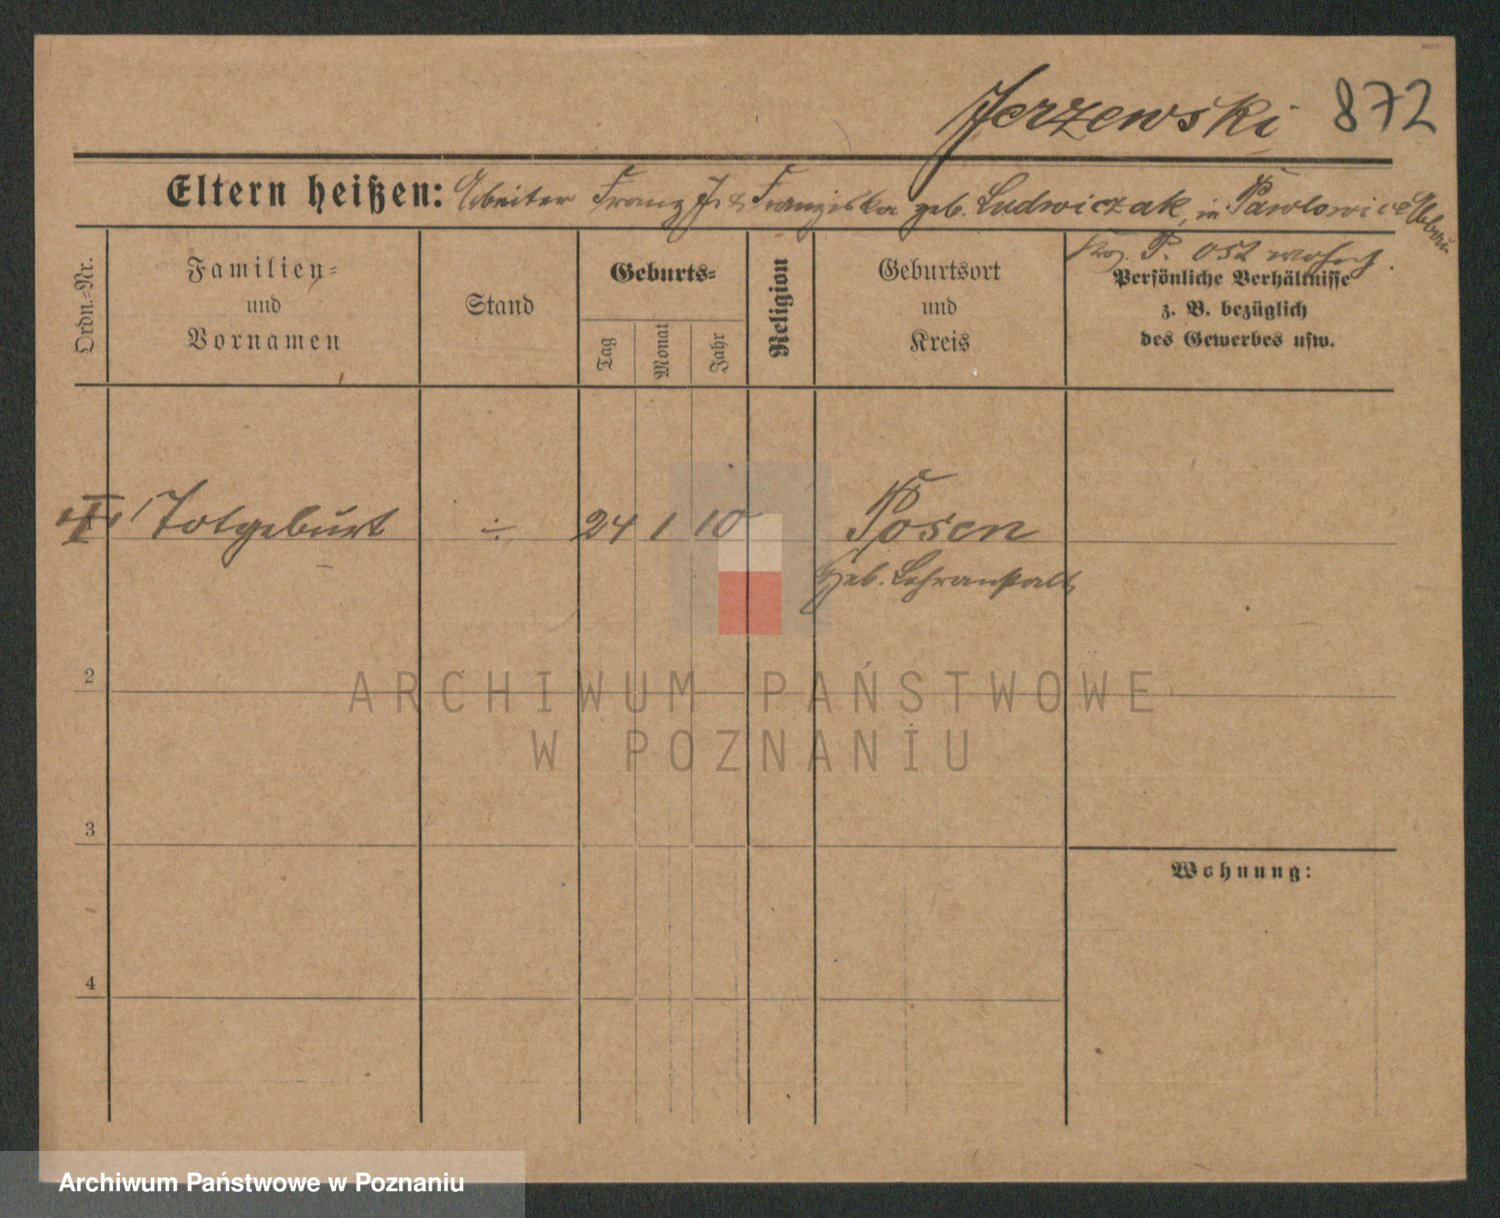 Jerzewski 872
Eltern heißen: Arbeiter Franz J. & Franziska geb. Ludwiczak, in Pawlowice
P. Ost wohnh.
Ordn.-Nr.
Familien-
und
Vornamen
Stand
Geburts-
Tag
Monat
Jahr
Religion
Geburtsort
und
Kreis
Persönliche Verhältnisse
z. B. bezüglich
des Gewerbes usw.
Totgeburt ÷ 24 1 10 Posen
Heb. Lehranstalt
2
3
4
Wohnung:
ARCHIWUM PAŃSTWOWE
W POZNANIU
Archiwum Państwowe w Poznaniu